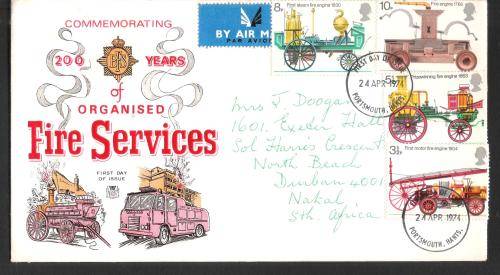 COMMEMORATING
200 YEARS
of
ORGANISED
Fire Services
FIRST DAY
OF
ISSUE
BY AIR M
PAR AVION
8p First steam fire engine 1830
10p Fire engine 1766
5½p Prizewinning fire engine 1863
3½p First motor fire engine 1904
FIRST DAY OF
24 APR 1974
PORTSMOUTH, HANTS.
24 APR 1974
PORTSMOUTH, HANTS.
Mrs J Doogan
1601 Exeter Hall
Sol Harris Crescent
North Beach
Durban 4001
Natal
Sth. Africa